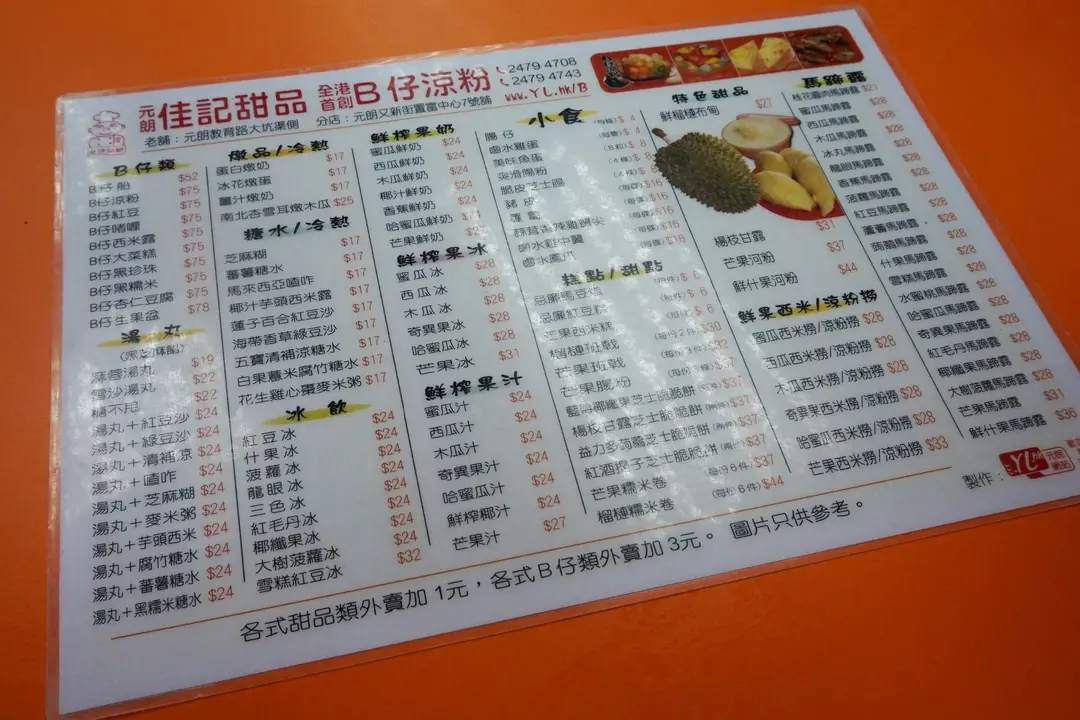 元朗 佳記甜品 全港首創 B仔涼粉
2479 4708
2479 4743
www.YL.hk/B
老舖：元朗教育路大坑渠側 分店：元朗又新街置富中心7號舖
B仔類
B仔船 $52
B仔涼粉 $75
B仔紅豆 $75
B仔啫喱 $75
B仔西米露 $75
B仔大菜糕 $75
B仔黑珍珠 $75
B仔黑糯米 $75
B仔杏仁豆腐 $75
B仔生果盆 $78
湯丸
(黑芝麻餡)
麻蓉湯丸 $19
雪沙湯丸 $22
糖不甩 $22
湯丸＋紅豆沙 $24
湯丸＋綠豆沙 $24
湯丸＋清補涼 $24
湯丸＋喳咋 $24
湯丸＋芝麻糊 $24
湯丸＋麥米粥 $24
湯丸＋芋頭西米 $24
湯丸＋腐竹糖水 $24
湯丸＋蕃薯糖水 $24
湯丸＋黑糯米糖水 $24
燉品/冷熱
蛋白燉奶 $17
冰花燉蛋 $17
薑汁燉奶 $17
南北杏雪耳燉木瓜 $25
糖水/冷熱
芝麻糊 $17
蕃薯糖水 $17
馬來西亞喳咋 $17
椰汁芋頭西米露 $17
蓮子百合紅豆沙 $17
海帶香草綠豆沙 $17
五寶清補涼糖水 $17
白果薏米腐竹糖水 $17
花生雞心棗麥米粥 $17
冰飲
紅豆冰 $24
什果冰 $24
菠蘿冰 $24
龍眼冰 $24
三色冰 $24
紅毛丹冰 $24
椰纖果冰 $24
大樹菠蘿冰 $24
雪糕紅豆冰 $32
鮮榨果奶
蜜瓜鮮奶 $24
西瓜鮮奶 $24
木瓜鮮奶 $24
椰汁鮮奶 $24
香蕉鮮奶 $24
哈蜜瓜鮮奶 $24
芒果鮮奶 $27
鮮榨果冰
蜜瓜冰 $28
西瓜冰 $28
木瓜冰 $28
奇異果冰 $28
哈蜜瓜冰 $28
芒果冰 $31
鮮榨果汁
蜜瓜汁 $24
西瓜汁 $24
木瓜汁 $24
奇異果汁 $24
哈蜜瓜汁 $24
鮮榨椰汁 $24
芒果汁 $27
小食
腸仔 $4
鹵水雞蛋 $4
美味魚蛋 $8
爽滑腸粉 $8
脆皮芝士腸 $8
豬皮 $16
$16
$16
鹵水雞中翼 $16
鹵水鳳爪 $16
糕點/甜點
忌廉馬豆糕 $6
忌廉紅豆糕 $6
芒果西米糕 $6
榴槤班戟 (每份2件) $30
芒果班戟 $32
芒果腸粉 $37
藍莓椰纖果芝士脆脆餅 $37
楊枝甘露芝士脆脆餅 $37
益力多蒟蒻芝士脆脆餅 $37
紅酒提子芝士脆脆餅 $37
芒果糯米卷 (每份6件) $37
榴槤糯米卷 (每份6件) $44
特色甜品
鮮榴槤布甸 $27
楊枝甘露 $31
芒果河粉 $37
鮮什果河粉 $44
鮮果西米/涼粉撈
蜜瓜西米撈/涼粉撈 $28
西瓜西米撈/涼粉撈 $28
木瓜西米撈/涼粉撈 $28
奇異果西米撈/涼粉撈 $28
哈蜜瓜西米撈/涼粉撈 $28
芒果西米撈/涼粉撈 $33
馬蹄露
桂花圓肉馬蹄露 $21
蜜瓜馬蹄露 $28
西瓜馬蹄露 $28
木瓜馬蹄露 $28
冰丸馬蹄露 $28
龍眼馬蹄露 $28
香蕉馬蹄露 $28
菠蘿馬蹄露 $28
紅豆馬蹄露 $28
蘆薈馬蹄露 $28
蒟蒻馬蹄露 $28
什果馬蹄露 $28
雪糕馬蹄露 $28
水蜜桃馬蹄露 $28
哈蜜瓜馬蹄露 $28
奇異果馬蹄露 $28
紅毛丹馬蹄露 $28
椰纖果馬蹄露 $28
大樹菠蘿馬蹄露 $28
芒果馬蹄露 $31
鮮什果馬蹄露 $36
各式甜品類外賣加 1元，各式B仔類外賣加 3元。 圖片只供參考。
製作： YL 元朗